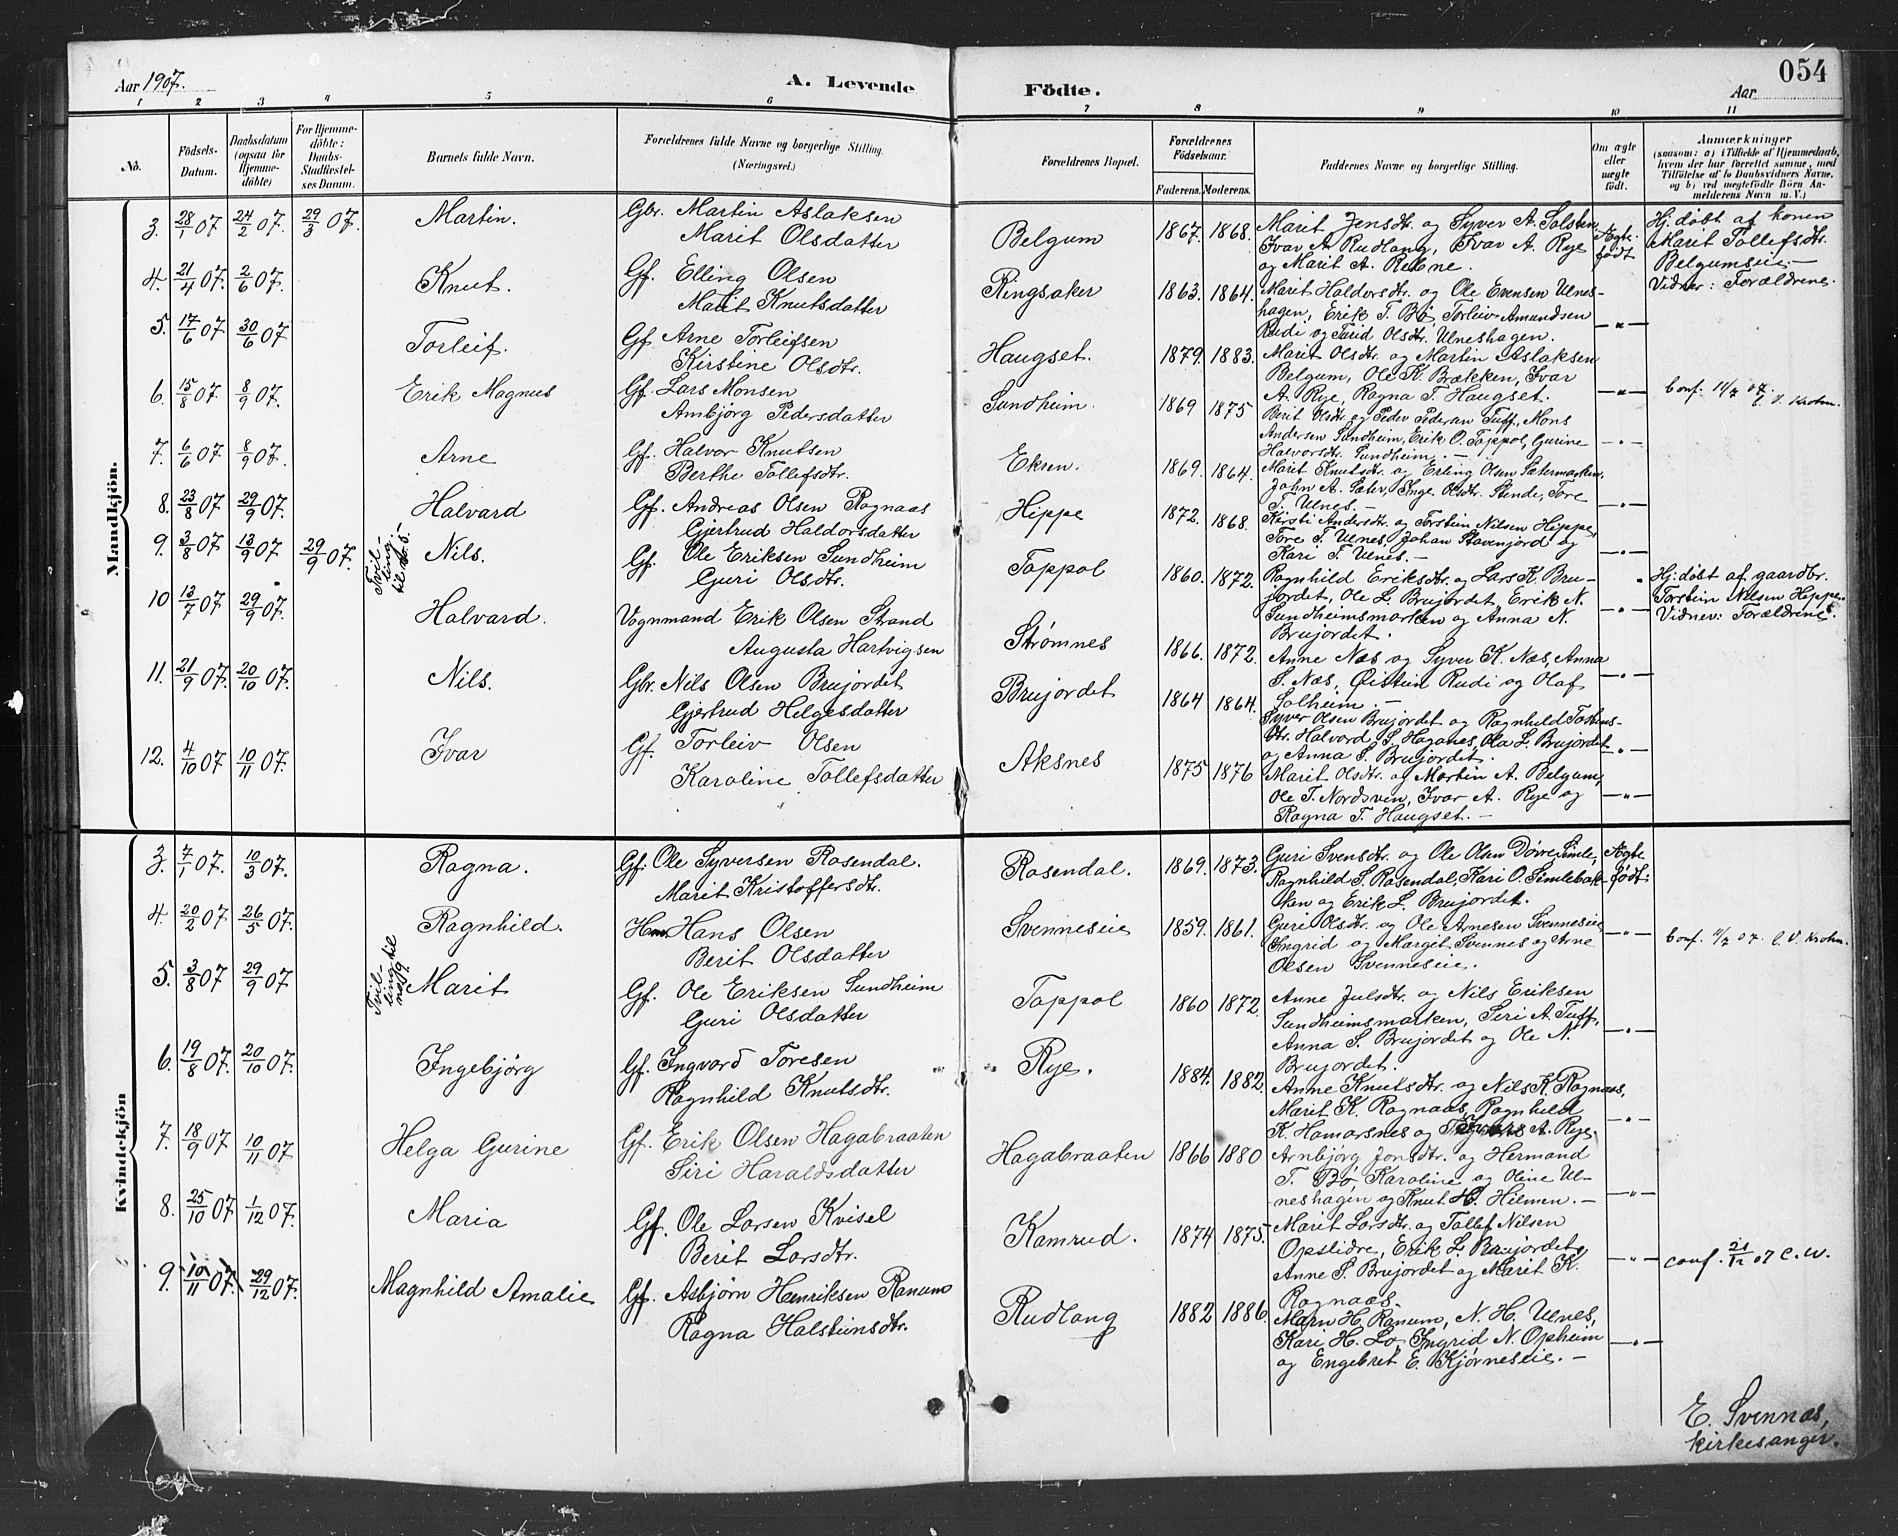 054
Aar 1907.
A. Levende Födte.
Aar
1 2 3 4 5 6 7 8 9 10 11
No.
Födsels-Datum.
Daabsdatum (ogsaa for Hjemme-döbte)
For Hjemme-döbte: Daabs-Stadfæstelses Datum.
Barnets fulde Navn.
Forældrenes fulde Navne og borgerlige Stilling. (Næringsvei.)
Forældrenes Bopæl.
Forældrenes Födselsaar.
Faderens. Moderens.
Faddernes Navne og borgerlige Stilling.
Om ægte eller uægte födt.
Anmærkninger
(saasom: a) i Tilfælde af Hjemmedaab, hvem der har forrettet samme, med Tilföielse af to Daabsvidners Navne, og b) ved uægtefödte Börn Anmelderens Navn m. V.)
Mandkjön.
3. 28/1 07 24/2 07. 29/3 07. Martin. Gbr. Martin Aslaksen
Marit Olsdatter
Belgum 1867. 1868. Marit Jensdtr. og Syver A. Solsten,
Ivar A. Rudlang, Ivar A. Rye
og Marit A. Rebne.
Ægte født
Hj. døbt af konen
Marit Tollefsdtr.
Belgumseie –
Vidner: Forældrene.
4. 21/4 07. 2/6 07. Knut. Gf. Elling Olsen
Marit Knutsdatter
Ringsaker 1863. 1864. Marit Haldorsdtr. og Ole Evensen Ulnes-
hagen, Erik T. Bø, Torleiv Amundsen
Rudi og Turid Olsdtr. Ulneshagen.
– " –
5. 17/6 07 30/6 07 Torleif. Gf. Arne Torleifsen
Kirstine Olsdtr.
Haugset. 1879. 1883. Marit Olsdtr. og Martin Aslaksen
Belgum, Ole K. Brækken, Ivar
A. Rye, Ragna T. Haugset.
– " –
Conf. 11/7 07. C. V. Krohn.
6. 15/8 07 8/9 07. Erik Magnus Gf. Lars Monsen
Ambjörg Pedersdatter
Sundheim. 1869 1875 Berit Olsdtr. og Peder Pedersen Tuff, Mons
Andersen Sundheim, Erik O. Toppol, Gurine
Halvorsdtr. Sundheim. –
– " –
7. 6/6 07 8/9 07. Arne Gf. Halvor Knutsen
Berthe Tollefsdtr.
Ekren. 1869. 1864. Marit Knutsdtr. og Erling Olsen Sætermarken,
John A. Sæter, Inge Olsdtr. Stende, Tore
T. Ulnes. –
– " –
8. 23/8 07 29/9 07. Halvard Gf. Andreas Olsen Rognaas
Gjertrud Haldorsdatter
Hippe 1872. 1868. Kirsti Andersdtr. og Torstein Nilsen Hippe,
Tore T. Ulnes, Johan Stavenjord og
Kari T. Ulnes. –
– " –
9. 3/8 07 13/9 07 29/9 07. Tvilling til no 5. Nils. Gf. Ole Eriksen Sundheim
Guri Olsdtr.
Toppol 1860. 1872. Ragnhild Eriksdtr. og Lars K. Bru-
jordet, Ole L. Brujordet, Erik N.
Sundheimsmarken og Anna N.
Brujordet.
"
Hj: døbt af gaardbr.
Torstein Nilsen Hippe.
Vidner: Forældrene.
10 13/7 07 29/9 07. Halvard. Vognmand Erik Olsen Strand
Augusta Hartvigsen
Strømnes 1866. 1872. Anne Næs og Syver K. Næs, Anna
S. Næs, Øistein Rudi og Olaf
Solheim. –
– " –
11. 21/9 07. 20/10 07. Nils. Gbr. Nils Olsen Brujordet
Gjertrud Helgesdatter
Brujordet 1864 1864. Syver Olsen Brujordet og Ragnhild Tostens-
dtr. Halvard S. Haganes, Ola L. Brujordet
og Anna S. Brujordet.
– " –
12. 4/10 07 10/11 07. Ivar Gf. Torleiv Olsen
Karoline Tollefsdatter
Aksnes 1875. 1876 Marit Olsdtr. og Martin A. Belgum,
Ole T. Nordsven, Ivar A. Rye og
Ragna T. Haugset. –
– " –
Kvindekjön
3. 7/1 07. 10/3 07. Ragna. Gf. Ole Syversen Rosendal.
Marit Kristoffersdtr.
Rosendal. 1869. 1873. Guri Svensdtr. og Ole Olsen Døvre Simle,
Ragnhild S. Rosendal, Kari O. Simlebak-
ken og Erik L. Brujordet.
Ægte født.
4. 20/2 07 26/5 07. Ragnhild. Hm. Hans Olsen
Berit Olsdatter
Svenneseie 1859. 1861. Guri Olsdtr. og Ole Arnesen Svenneseie,
Ingrid og Margit Svennes og Arne
Olsen Svenneseie.
– " –
Conf. 11/7 07. C. V. Krohn.
5. 3/8 07 29/9 07 Tvilling til no 9. Marit Gf. Ole Eriksen Sundheim
Guri Olsdatter
Toppol 1860 1872. Anne Julsdtr. og Nils Eriksen
Sundheimsmarken, Siri A. Tuff,
Anna S. Brujordet og Ole N.
Brujordet.
– " –
6. 19/8 07. 20/10 07. Ingebjörg Gf. Ingvard Toresen
Ragnhild Knutsdtr.
Rye. 1884. 1882. Anne Knutsdtr. og Nils K. Rognaas,
Marit K. Rognaas, Ragnhild
K. Hamarsnes og A. Rye.
– " –
7. 18/9 07 10/11 07. Helga Gurine Gf. Erik Olsen Hagabraaten
Siri Haraldsdatter
Hagabraaten 1866 1880 Arnbjörg Jonsdtr. og Hermand
T. Bø, Karoline og Oline Ul-
neshagen og Knut H. Hilmen. –
– " –
8. 25/10 07. 1/12 07. Maria Gf. Ole Larsen Kvisel
Berit Larsdtr.
Kamrud. 1874 1875. Marit Larsdtr. og Tollef Nilsen
Opslidre, Erik L. Brujordet,
Anne S. Brujordet og Marit K.
Rognaas.
– " –
conf. 21/12 07 C. W.
9. 10/11 07. 29/12 07. Magnhild Amalie Gf. Asbjørn Henriksen Ranum
Ragna Halsteinsdtr.
Rudlang 1882 1886. Marn H. Ranum, N. H. Ulnes,
Kari H. Lo, Ingrid N. Opheim
og Engebret E. Kjørneseie. –
– " –
E. Svennæs,
kirkesanger.